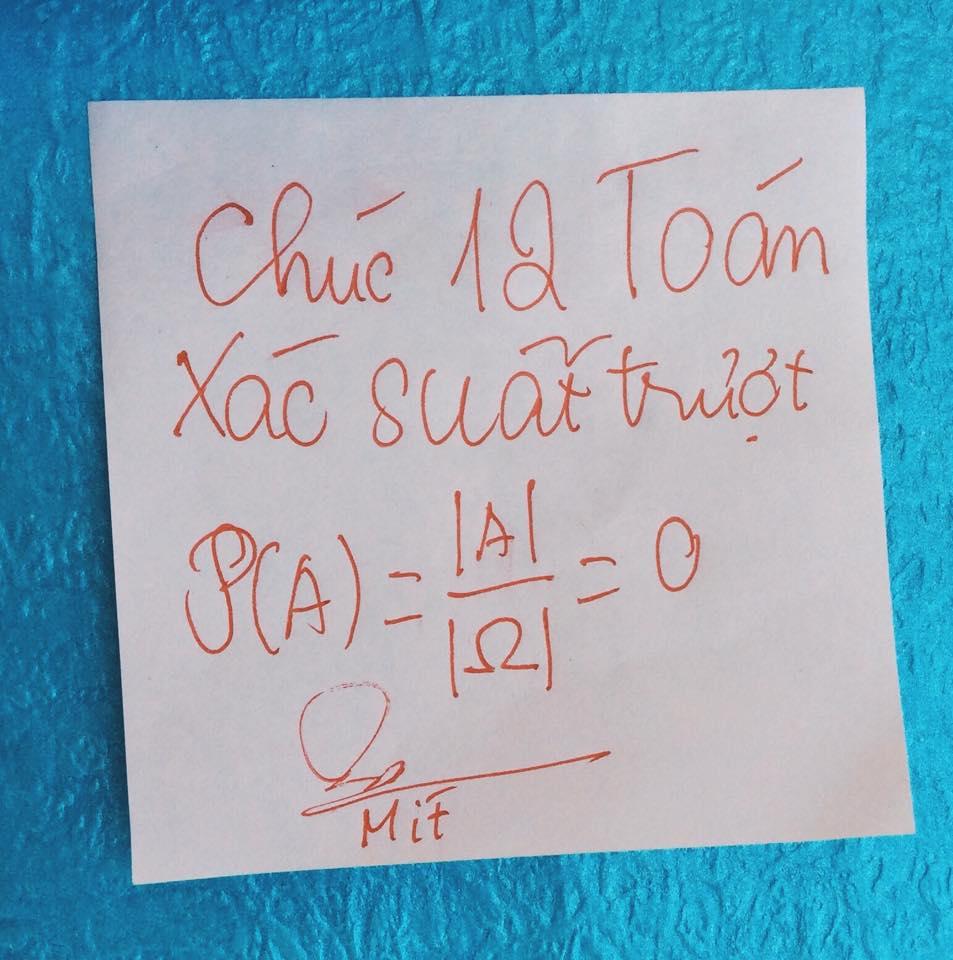 Chúc 12 Toán
Xác suất trượt
P(A) = |A| / |Ω| = 0
Mít